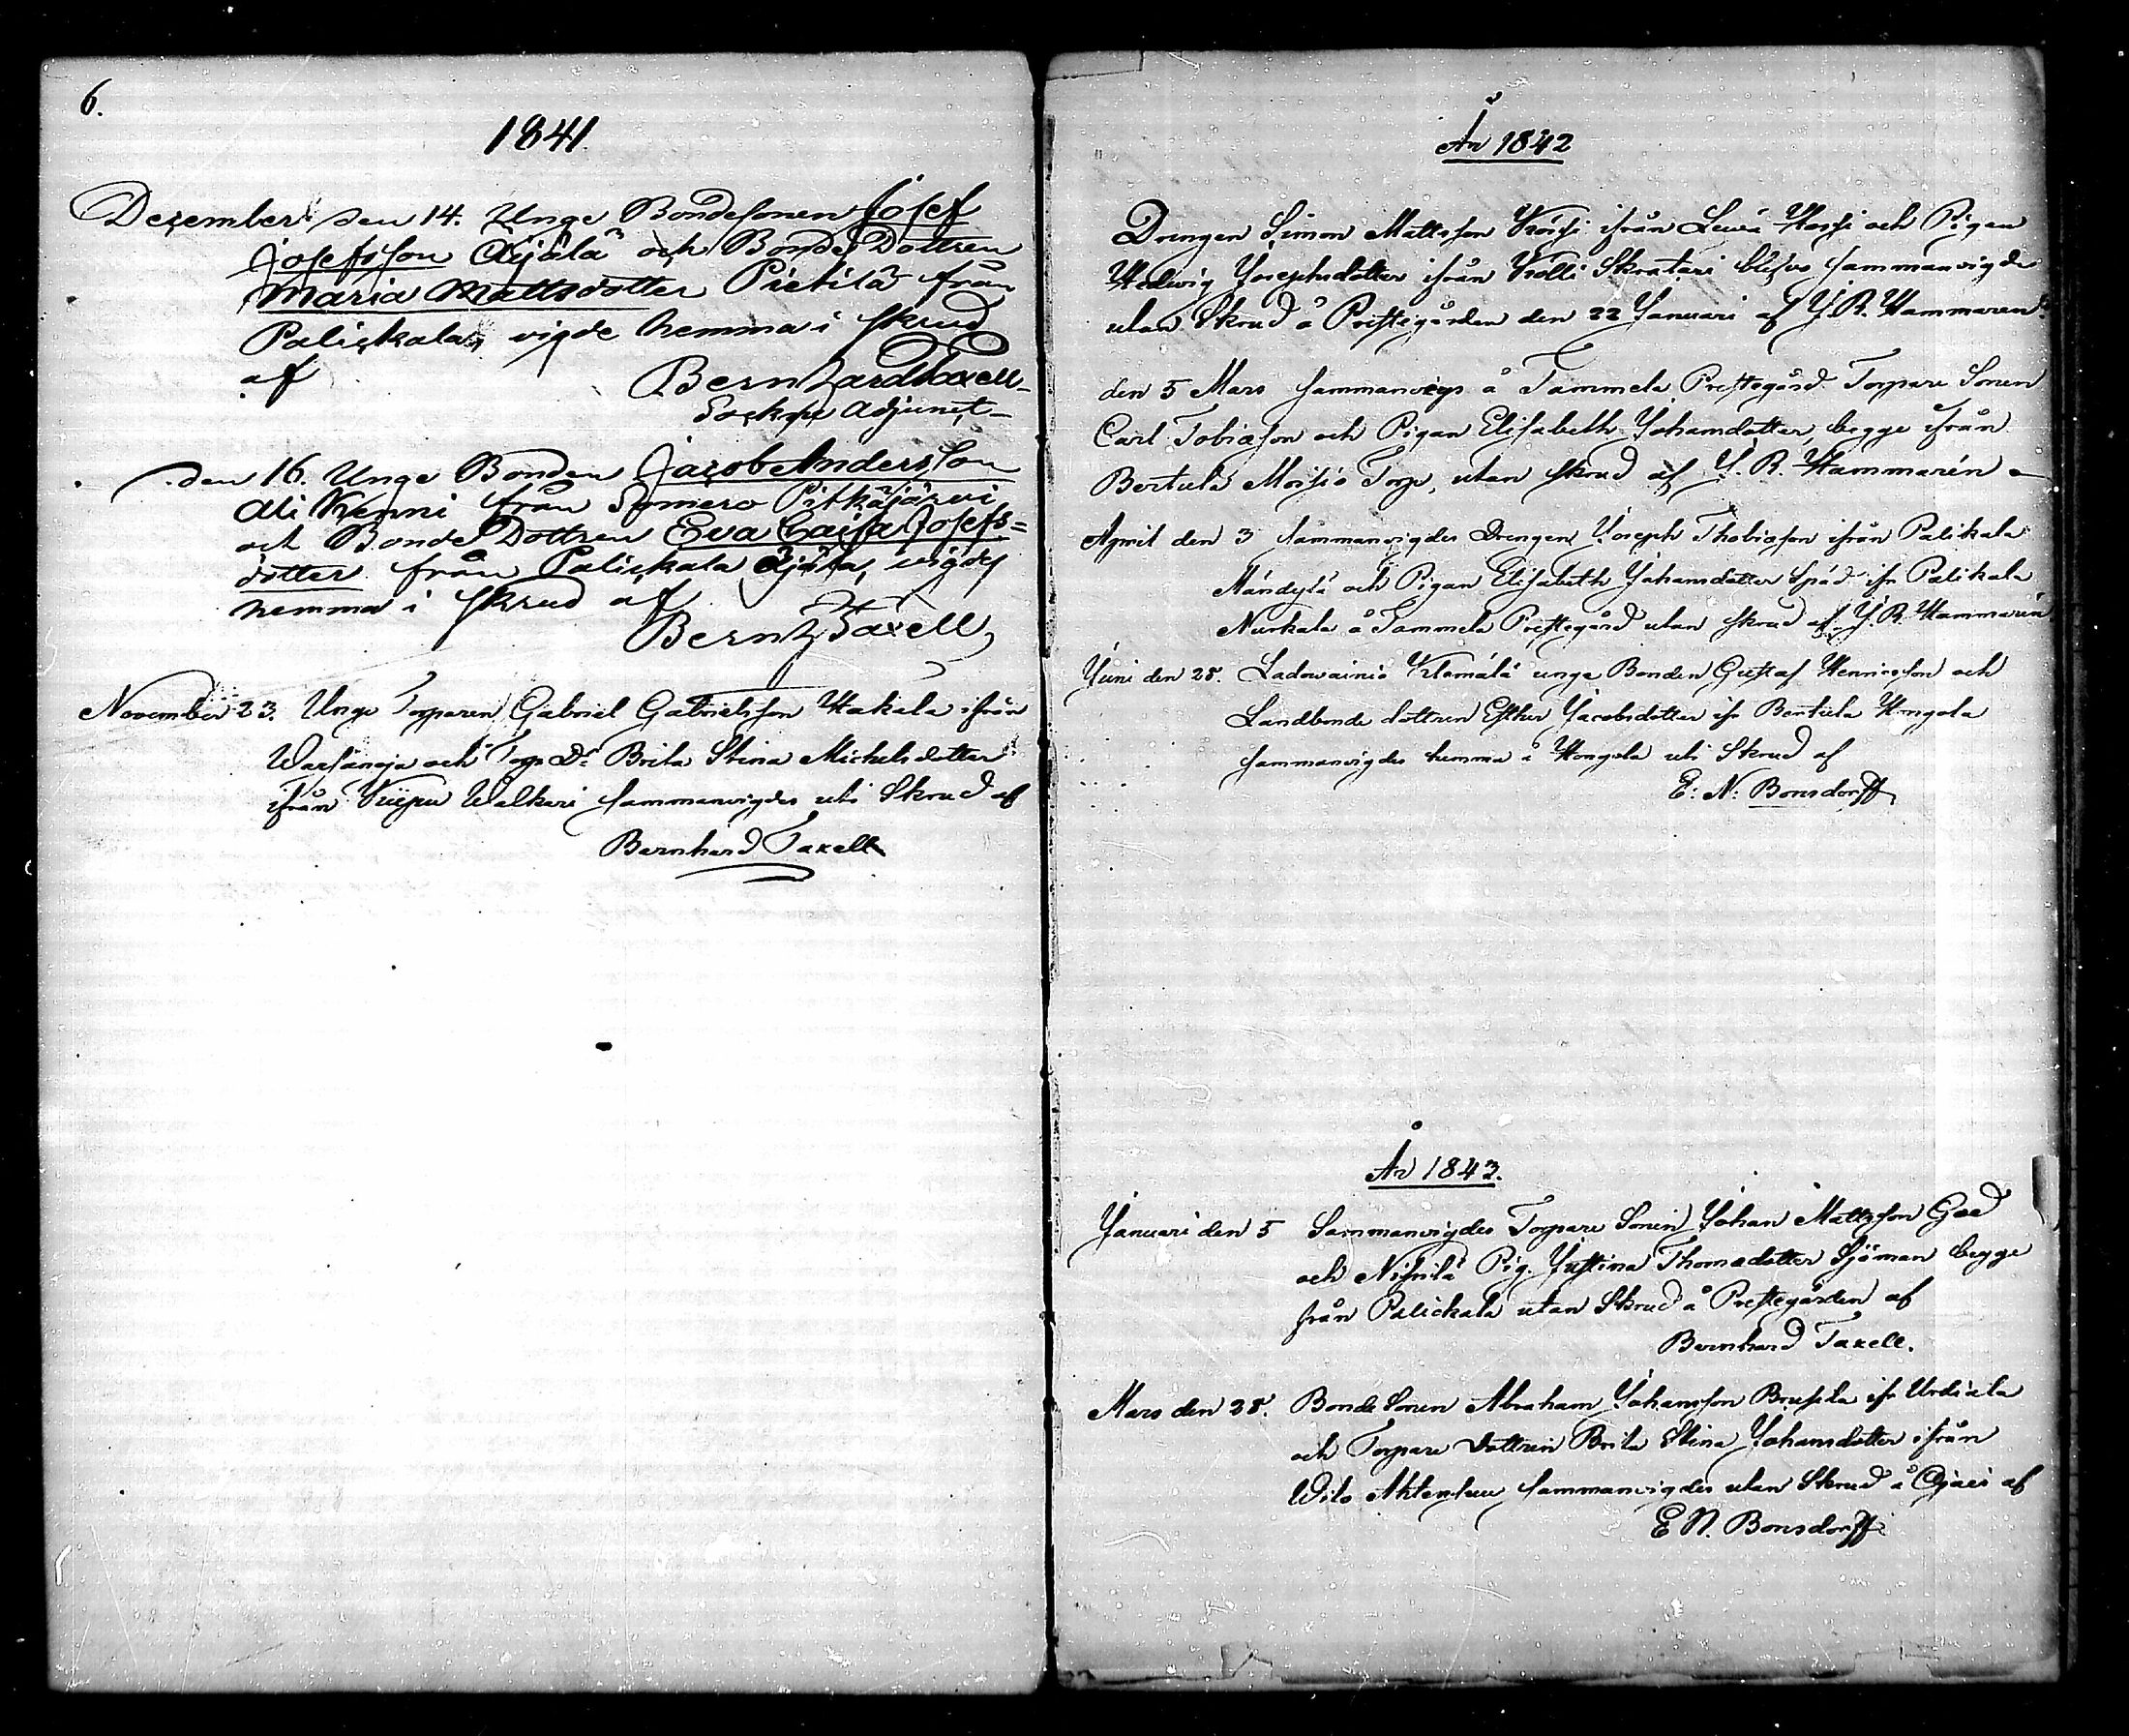 6.
1841.
Dezember den 14. Unge Bondesonen Josef
Josefsson Äijälä och Bonde Dottren
Maria Mattsdotter Pietilä från
Palickala, vigde hemma i skrud
af Bernhard Taxell
Sockne Adjunct
den 16. Unge Bonden Jacob Andersson
Ali Kenni från Somero Pitkäjärvi
och Bonde Dottren Eva Caisa Josefs=
dotter från Palickala Äijälä, vigdes
hemma i skrud af
Bernh Taxell,
November 23. Unge Torparen Gabriel Gabrielsson Hakala ifrån
och Torp. Dr Brita Stina Michelsdotter
ifrån Kuipu Walkeri sammanvigdes uti Skrud af
Bernhard Taxell
År 1842
Drengen Simon Mattsson ifrån och Pigan
Hedwig Josephsdotter ifrån Kolli blefvo sammanvigde
utan Skrud å Prestegården den 22 Januari af J. R. Hammaren
den 5 Mars sammanvigs å Tammela Prestegård Torpare Sonen
Carl Tobiasson och Pigan Elisabeth Johansdotter, begge ifrån
Bertula Moisio Torp, utan skrud af J. R. Hammarén
April den 3 sammanvigdes Drengen Joseph Thobiasson ifrån Palikala
Mändylä och Pigan Elisabeth Johansdotter Späd ifr Palikala
Nurkala å Tammela Prestegård utan skrud af J. R. Hammarén
Juni den 28. Unge Bonden Gustaf Henricsson och
Landbonde dottren Esther Jacobsdotter ifr Bertula Hongola
sammanvigdes hemma å Hongola uti Skrud af
E: N: Bonsdorff
År 1843.
Januari den 5 Sammanvigdes Torpare Sonen Johan Mattsson God
och Pig. Justina Thomasdotter Sjöman begge
från Palickala utan Skrud å Prestegården af
Bernhard Taxell.
Mars den 28. Bonde Sonen Abraham Johansson Brusila ifr Urdiala
och Torpare dottren Brita Stina Johansdotter ifrån
sammanvigdes utan Skrud å Ojais af
E N. Bonsdorff